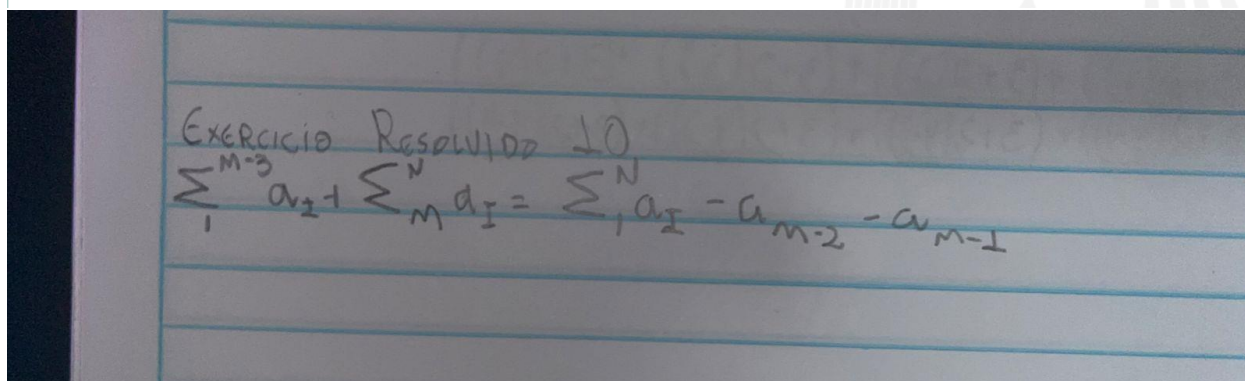 EXERCICIO RESOLVIDO 10
∑₁^{M-3} a_I + ∑_M^N a_I = ∑₁^N a_I - a_{M-2} - a_{M-1}